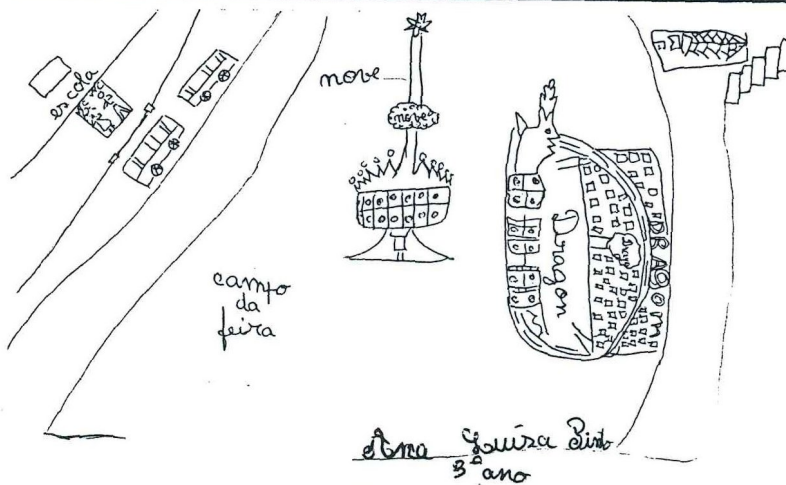 escola
nove
nove
campo
da
feira
Dragon
DRAGOM
Ana Luísa Pinto
3º ano